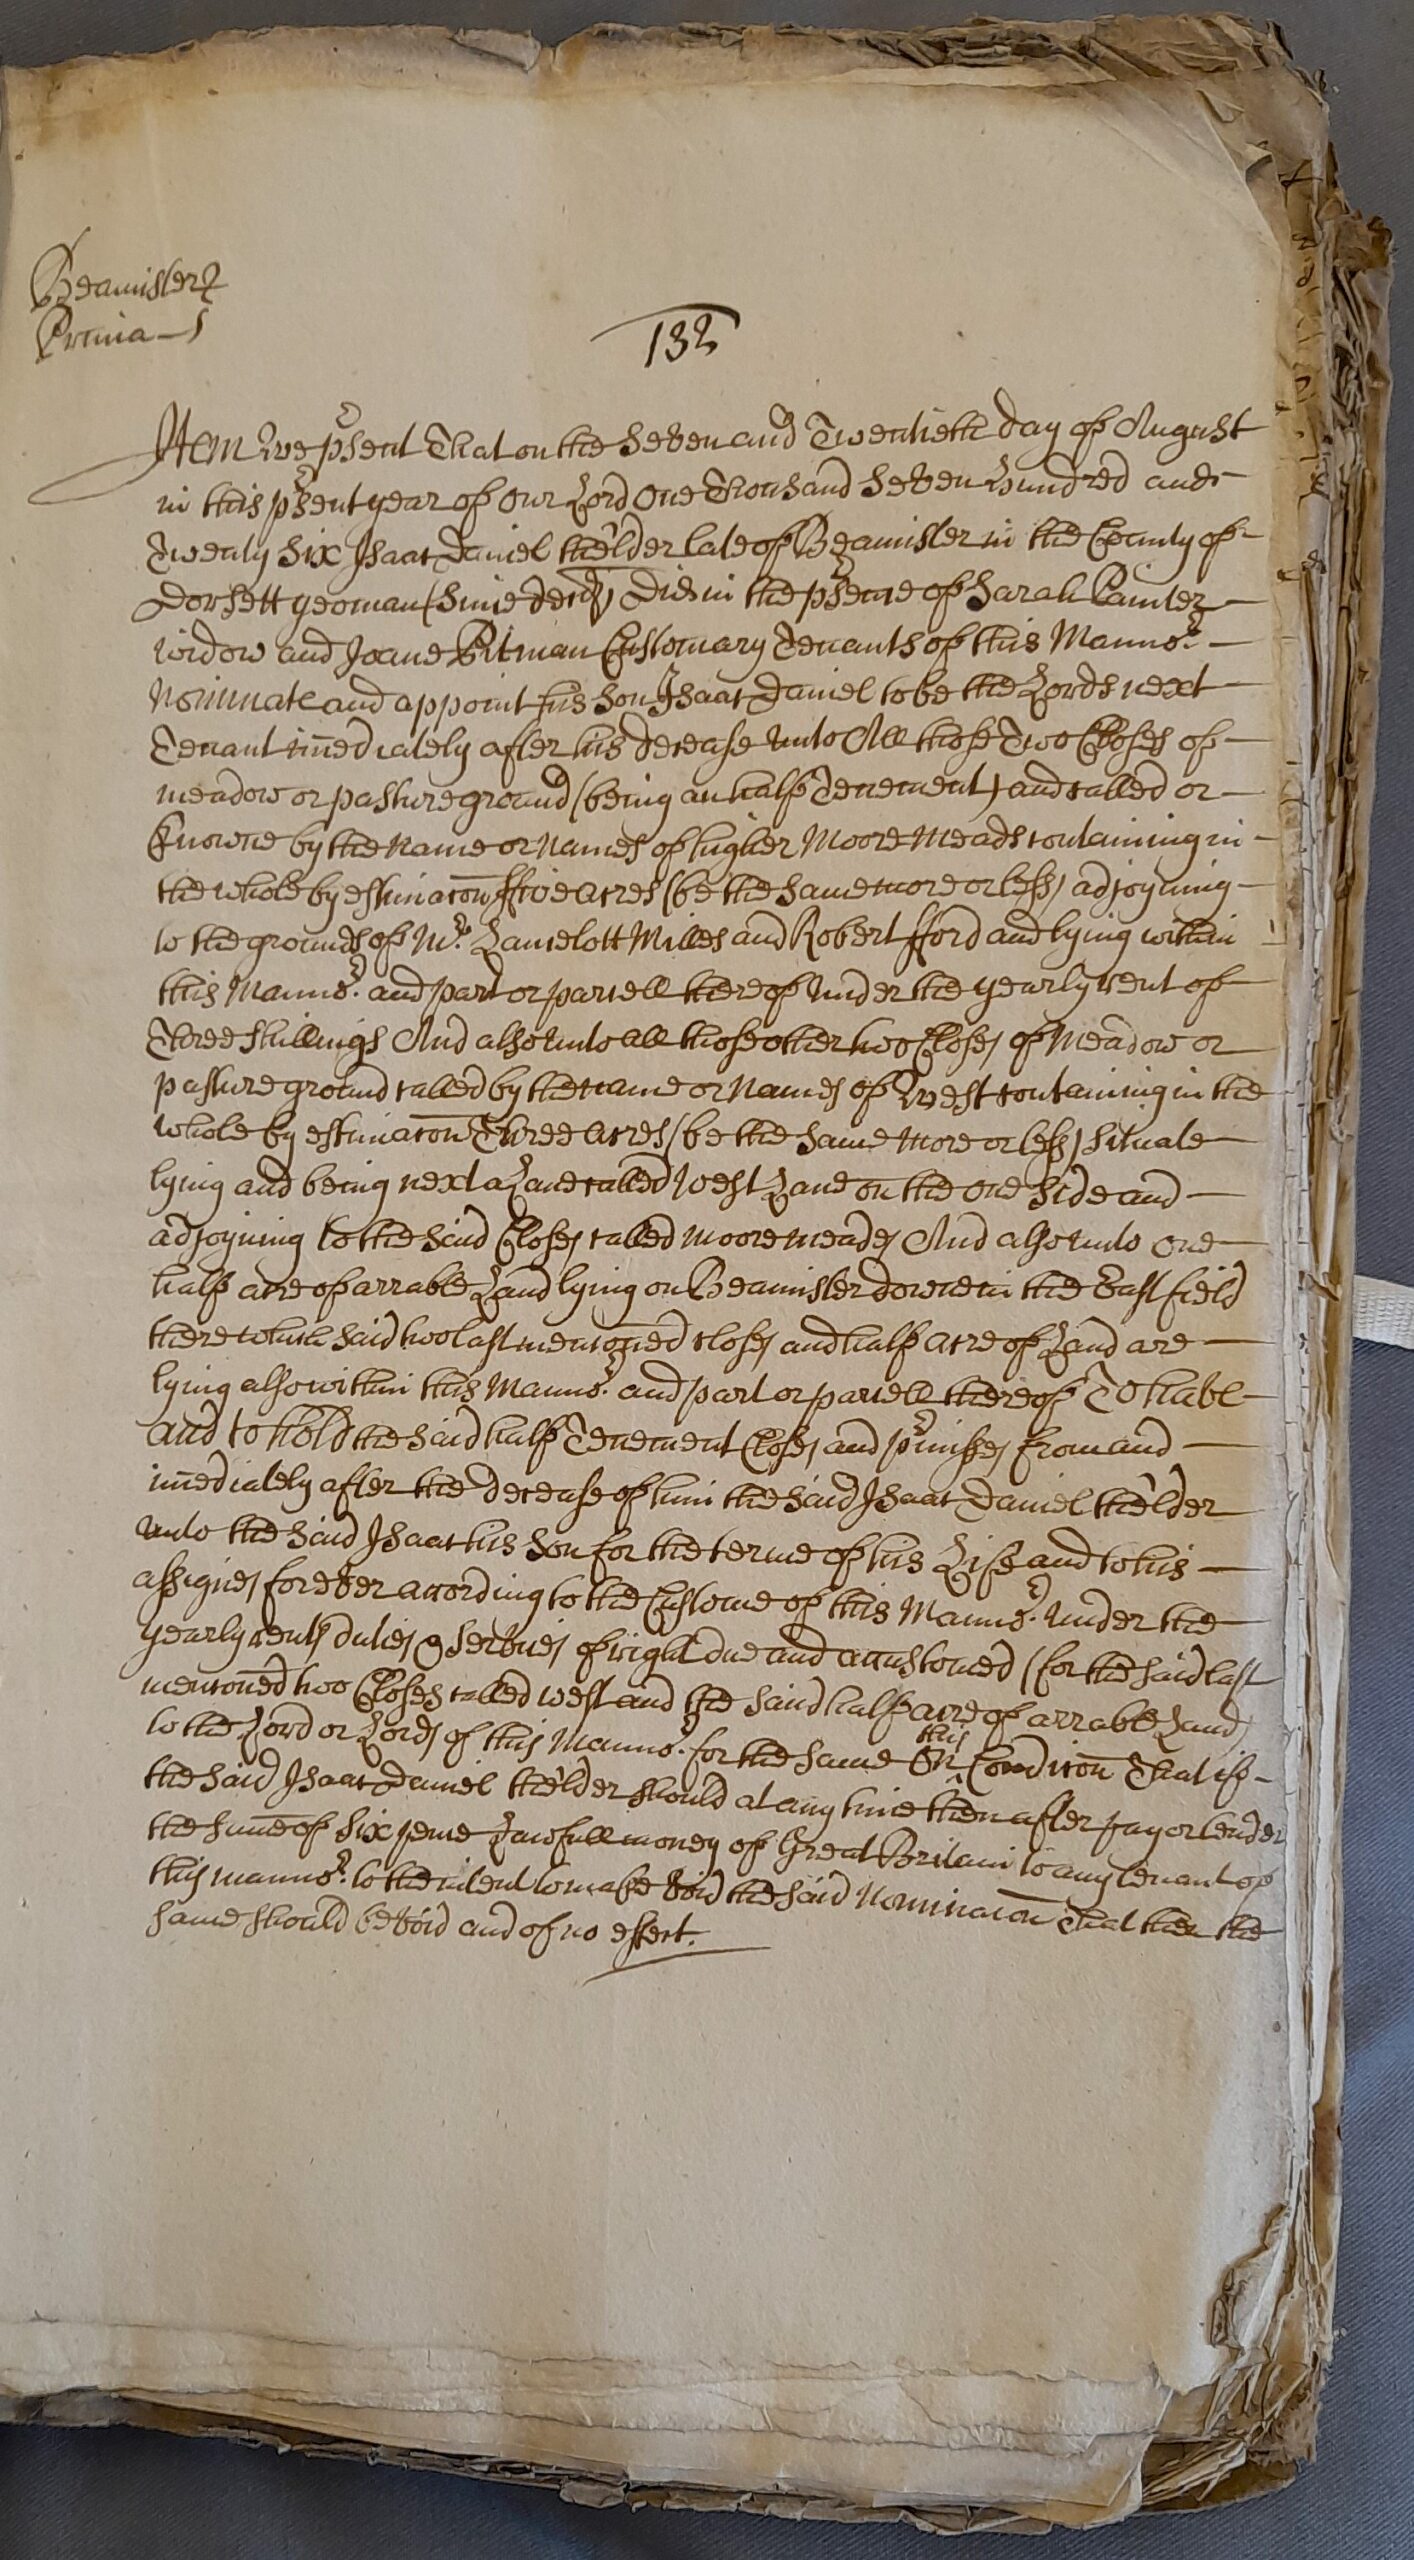 Beamister
Prima
132
Item Wee psent That on the Seven and Twentieth day of August
in this psent year of our Lord One Thousand Seven Hundred and
Twenty Six Isaac Daniel the elder late of Beamister in the County of
Dorsett yeoman (since decd) Did in the psence of Sarah Painter
widow and Joane Pitman Customary Tenants of this Mannor
Nominate and appoint his Son Isaac Daniel to be the Lords next
Tenant imediately after his decease Unto All those Two Closes of
meadow or pasture ground (being an half Tenement) and called or
knowne by the name or Names of higher Moore Meads containing in
the whole by estimacon ffive acres (be the same more or less) adjoyning
to the grounds of Mr. Lancelott Milles and Robert fford and lying within
this Mannor. and part or parcell thereof Under the yearly rent of
Three Shillings And also unto all those other two Closes of Meadow or
pasture ground called by the name or Names of West containing in the
whole by estimacon Three acres (be the same more or less) situate
lying and being next a Lane called West Lane on the one side and
adjoyning to the said Closes called Moore meades And also unto one
half acre of arrable Land lying on Beamister downe in the East field
there which said two last menconed closes and half acre of Land are
lying also within this Mannor. and part or parcell thereof To have
and to hold the said half Tenement Closes and pmisses from and
imediately after the decease of him the said Isaac Daniel the elder
unto the said Isaac his Son for the terme of his Life and to his
assignes forever according to the Custome of this Mannor. Under the
yearly rents duties & services of right due and accustomed (for the said last
menconed two Closes called west and the said half acre of arrable Land)
to the Lord or Lords of this Mannor. for the same On this Condicon That if
the said Isaac Daniel the elder should at any time then after pay or tender
the sume of six pence Lawfull money of Great Britain to any tenant of
this mannor. to the intent to make void the said Nominacon That then the
same should be void and of no effect.